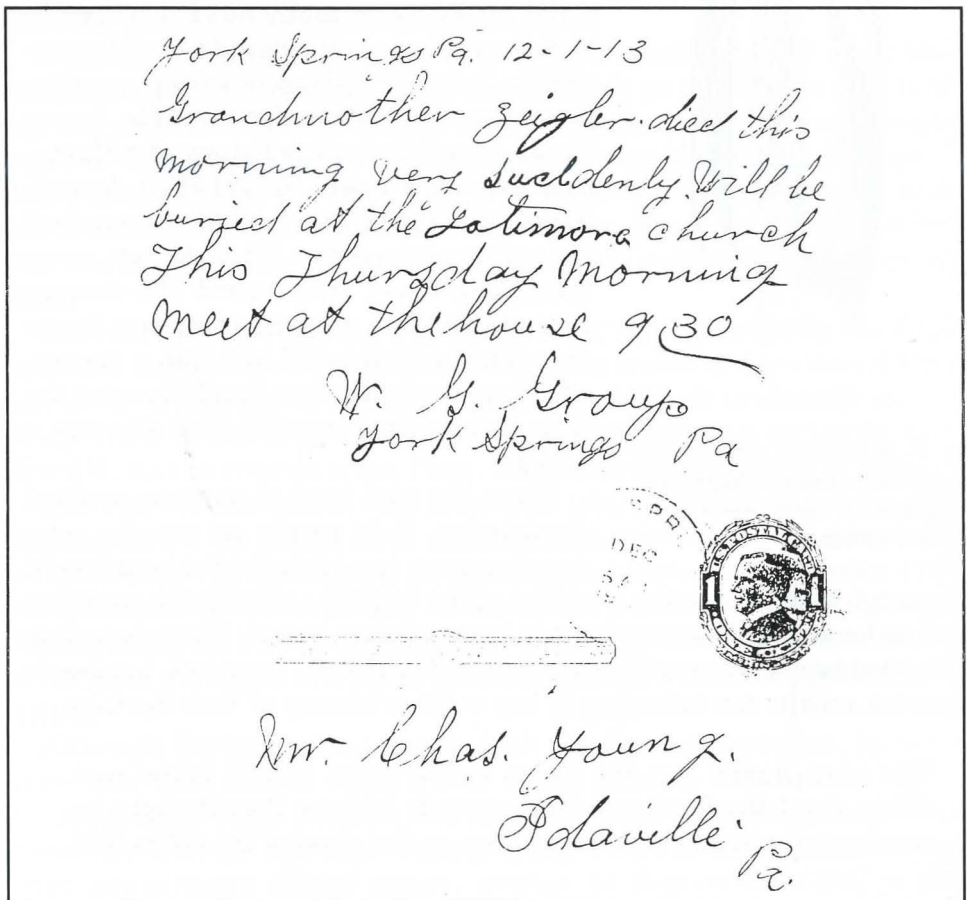 York Springs Pa. 12-1-13
Grandmother Zeigler died this
morning very suddenly. Will be
buried at the Latimore church
This Thursday Morning
Meet at the house 9 30
W. G. Group
York Springs Pa
SPRI
DEC
1 1
Mr. Chas. Young.
Idaville
Pa.